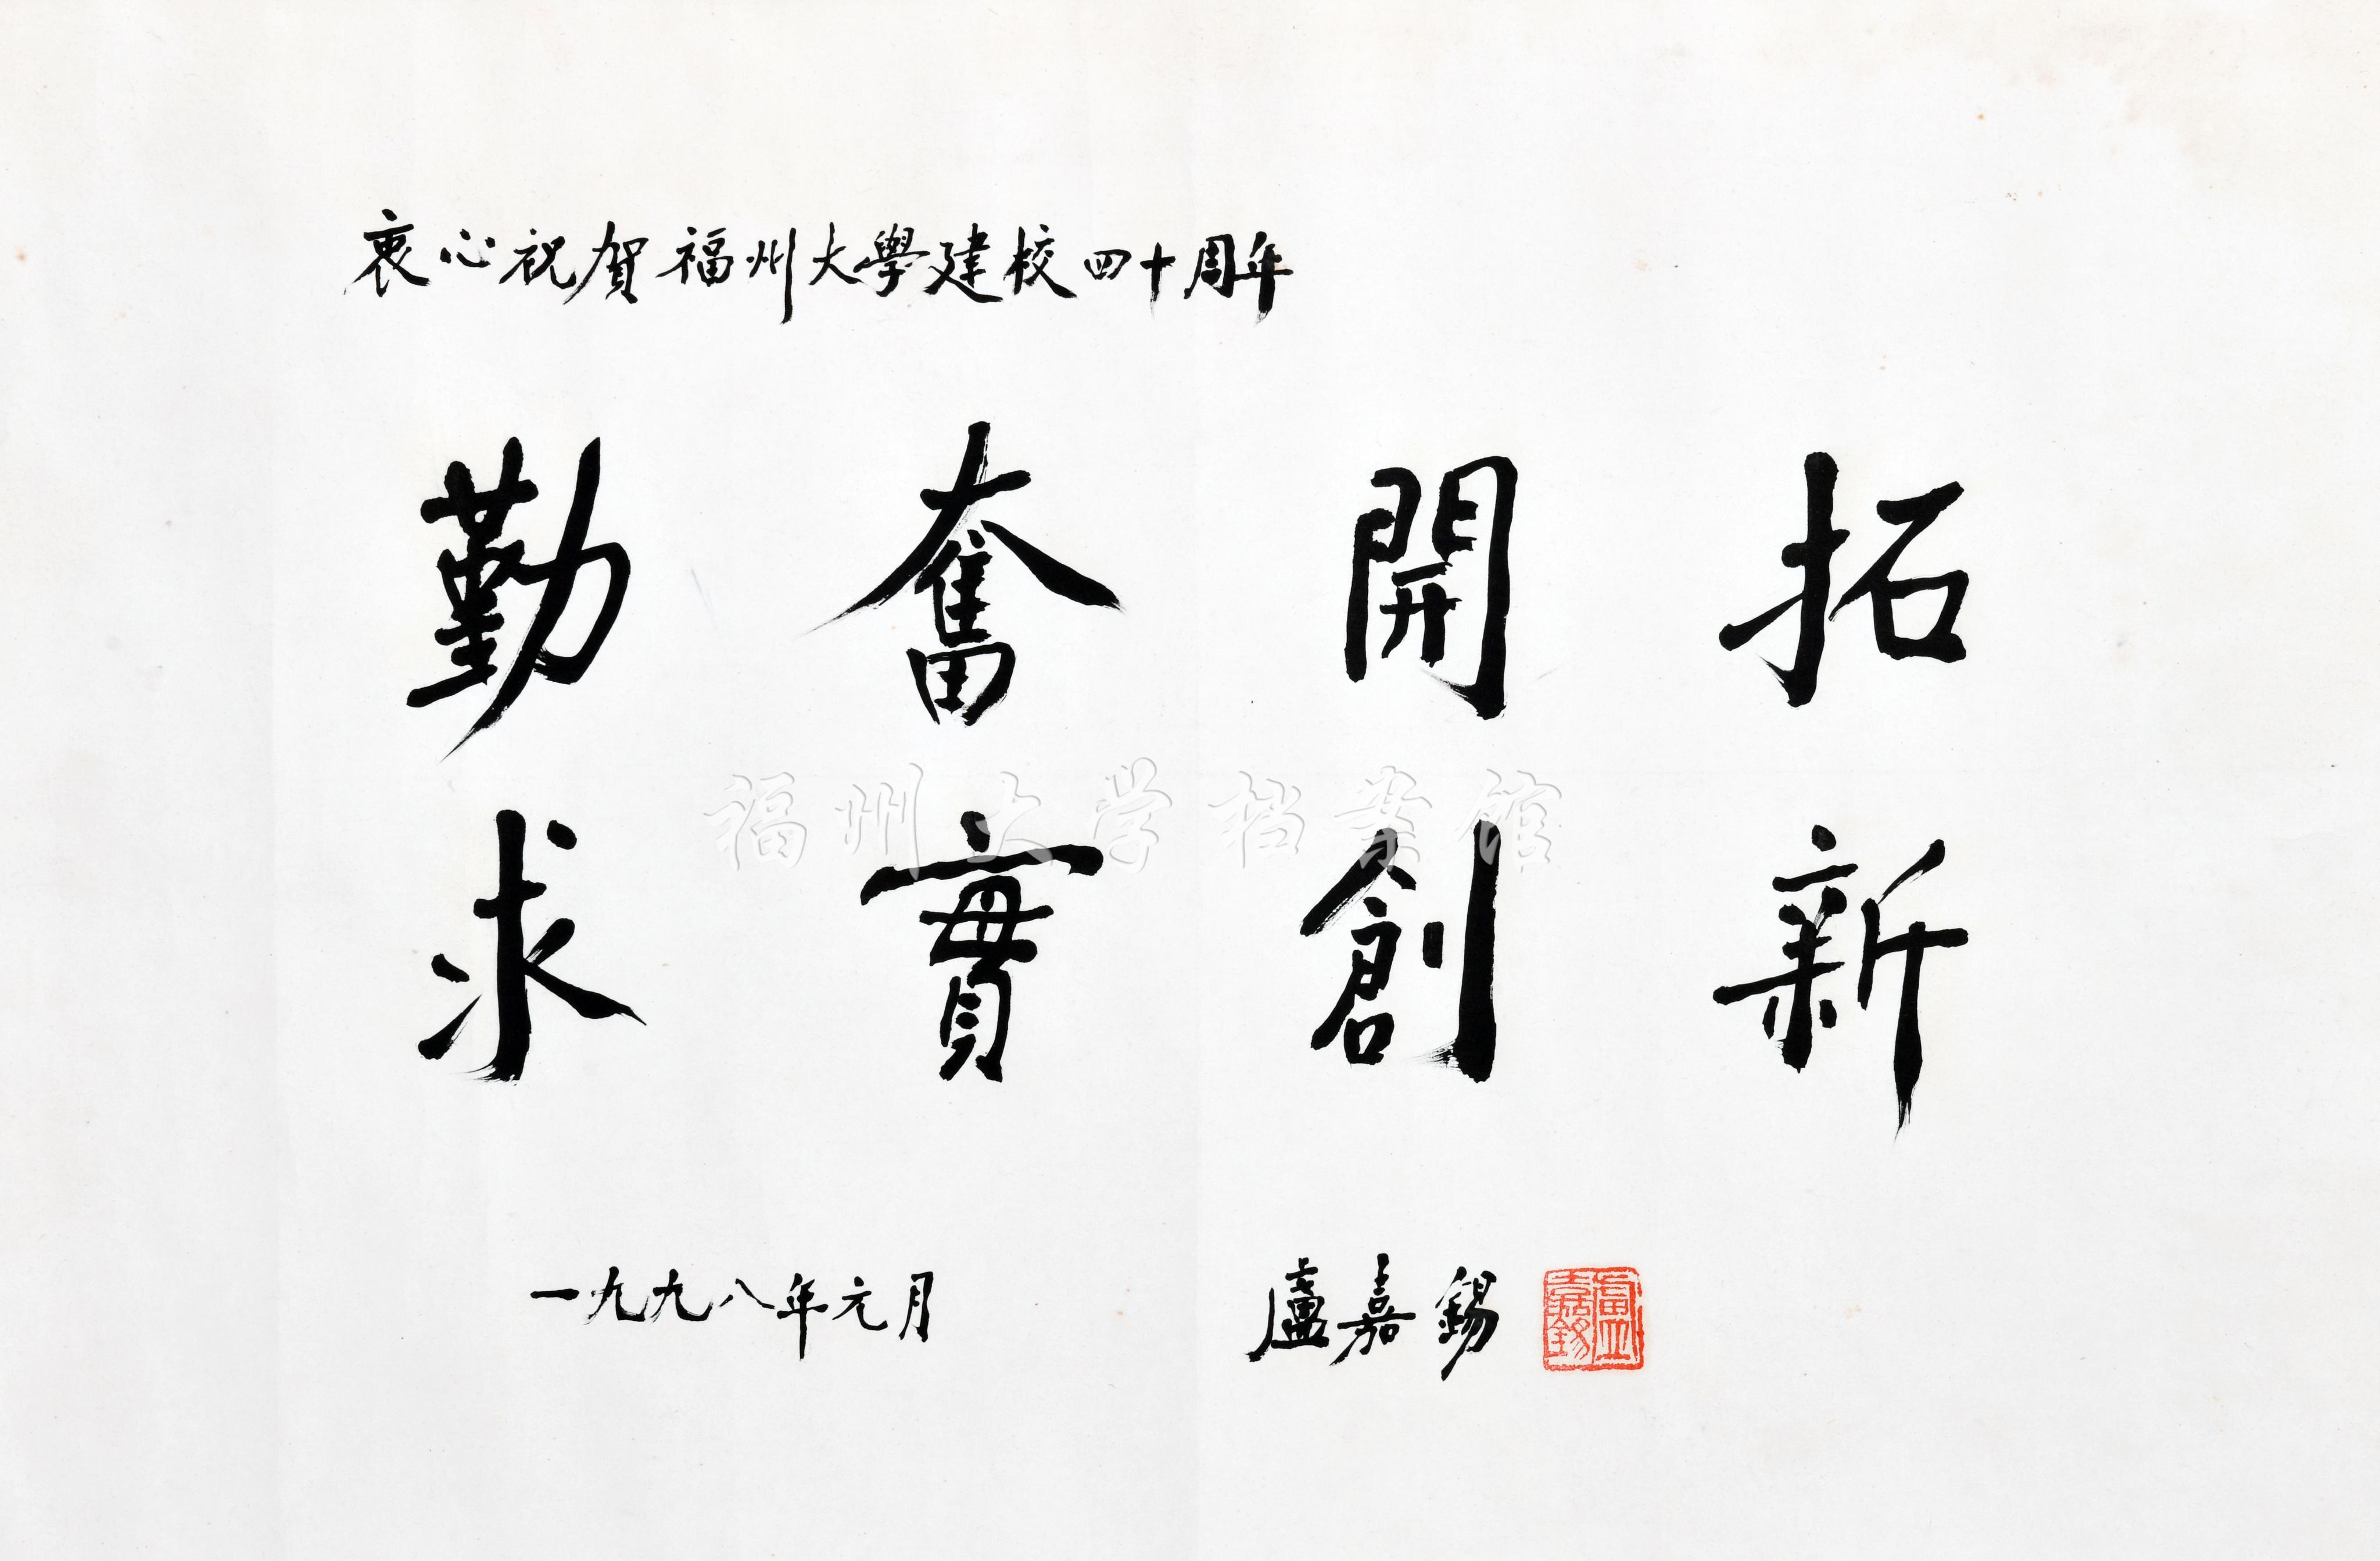 衷心祝賀福州大學建校四十周年
勤奮開拓
福州大学档案馆
求實創新
一九九八年元月 盧嘉錫
盧嘉錫